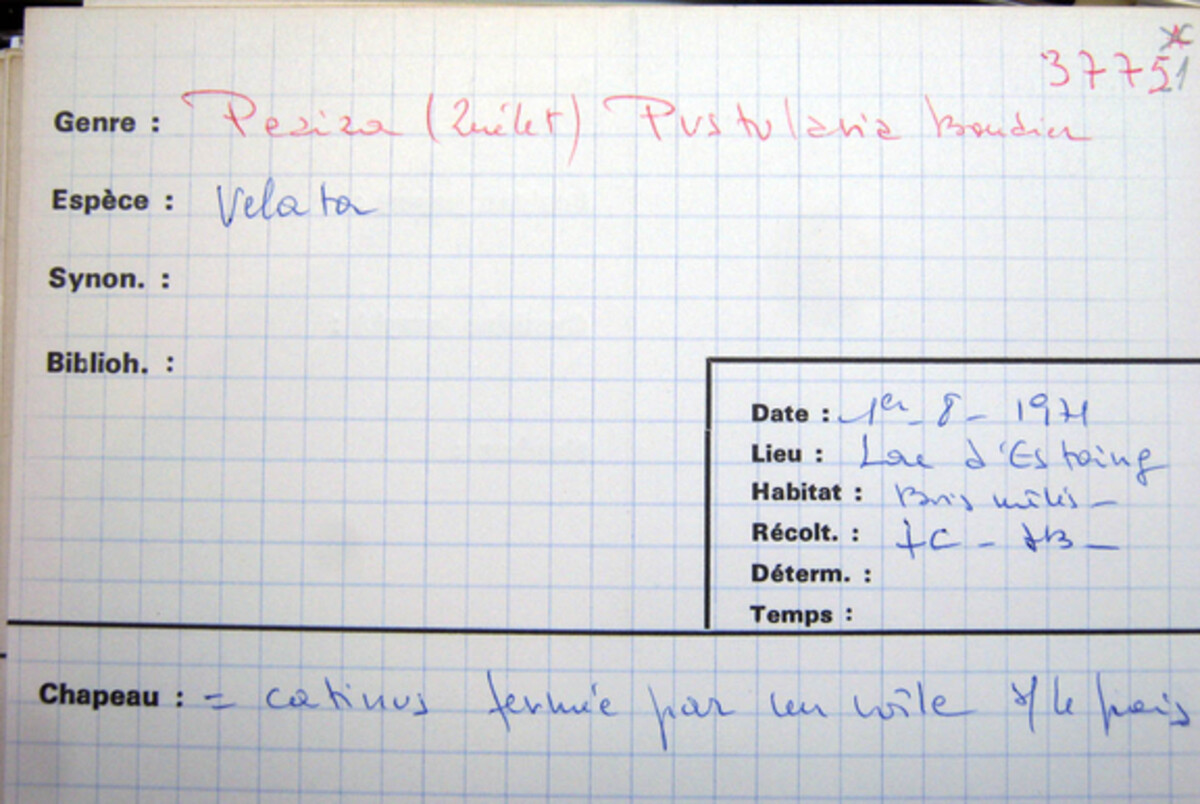 37751
Genre : Peziza (Quélet) Pustularia Boudier
Espèce : Velata
Synon. :
Biblioh. :
Date : 1er - 8 - 1971
Lieu : Lac d'Estaing
Habitat : Bois mêlés -
Récolt. :
Déterm. :
Temps :
Chapeau : = catinus fermée par un voile s/ le frais